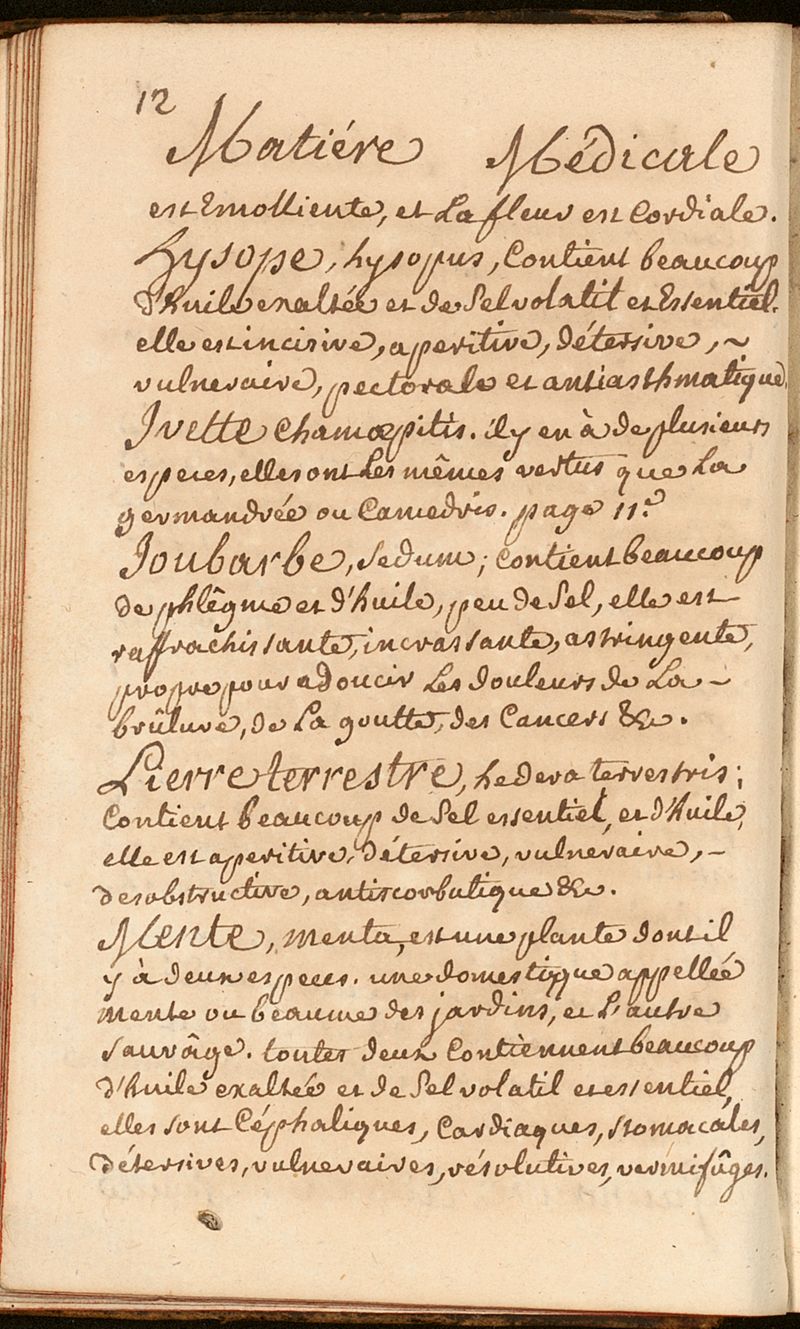 12
Matiére Médicale
est Emolliente, et La fleur est Cordiale.
Hysope, hysopus, Contient beaucoup
d'huile exaltée et de Sel volatil et Essentiel.
elle est incisive, aperitive, détersive, ~
vulneraire, pectorale et antiasthmatique.
Ivette chamœpitis. il y en à de plusieurs
especes, elles ont Les mêmes vertus que La
germandrée ou Camedris. page 11.e
Joubarbe, Sedum; Contient beaucoup
de phlêgme et d'huile, peu de Sel, elle est
raffraichissante, incrassante, astringente,
propre pour adoucir Les douleurs de La ~
brûlure, de La goutte, des Cancers &c.
Lierre terrestre, hedera terrestris;
Contient beaucoup de Sel essentiel, et d'huile,
elle est aperitive, détersive, vulneraire, ~
desobstructive, antiscorbutique &c.
Mente, menta, est une plante dont il
y à deux especes. une domestique appellée
mente ou beaume des jardins, et L'autre
sauvâge. toutes deux Contiennent beaucoup
d'huile exaltée et de Sel volatil et essentiel,
elles sont Céphaliques, Cardiaques, stomacales,
détersives, vulneraires, résolutives, vermifûges.